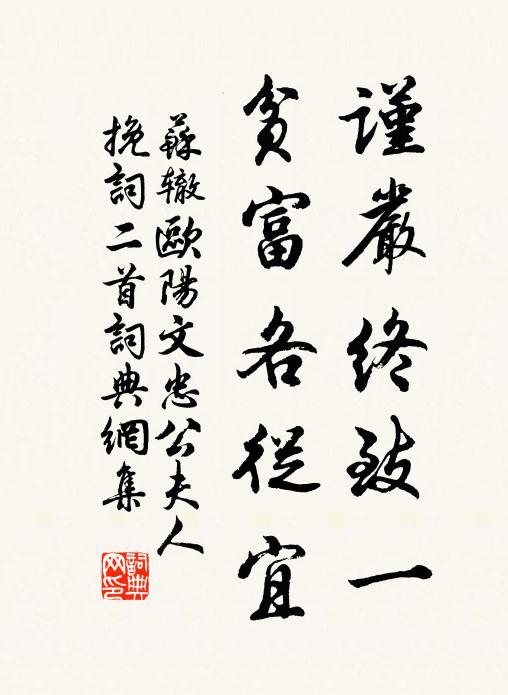 謹嚴終致一
貧富各從宜
蘇轍歐陽文忠公夫人
挽詞二首詞典網集
詞典
网印